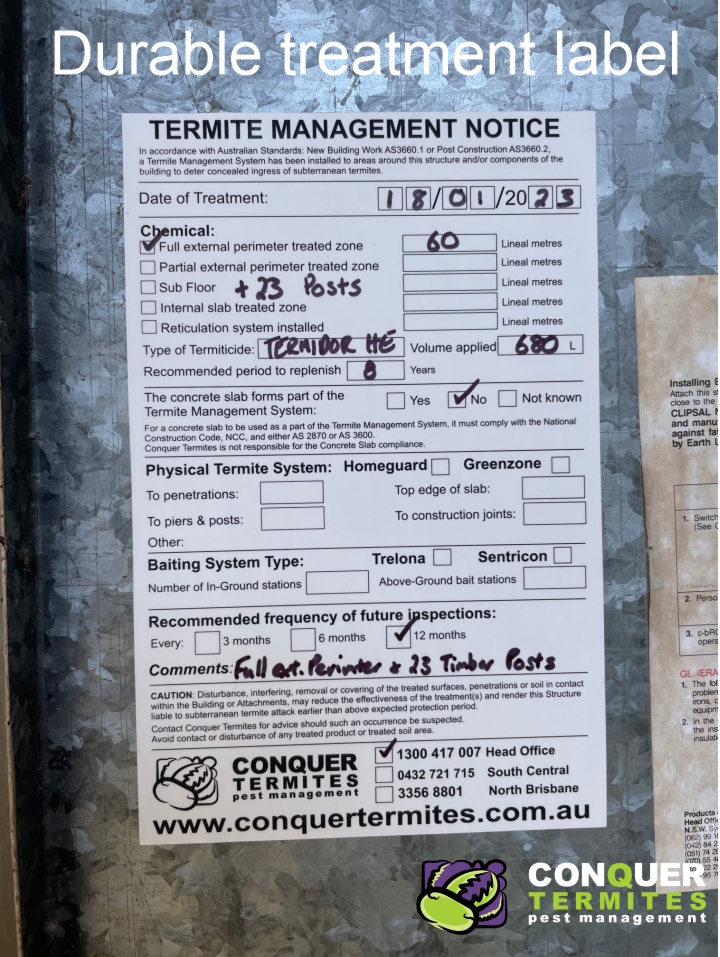 Durable treatment label
TERMITE MANAGEMENT NOTICE
In accordance with Australian Standards: New Building Work AS3660.1 or Post Construction AS3660.2,
a Termite Management System has been installed to areas around this structure and/or components of the
building to deter concealed ingress of subterranean termites.
Date of Treatment: 18/01/2023
Chemical:
Full external perimeter treated zone 60 Lineal metres
Partial external perimeter treated zone Lineal metres
Sub Floor + 23 Posts Lineal metres
Internal slab treated zone Lineal metres
Reticulation system installed Lineal metres
Type of Termiticide: TERMIDOR HE Volume applied 680 L
Recommended period to replenish 8 Years
The concrete slab forms part of the
Termite Management System: Yes No Not known
For a concrete slab to be used as a part of the Termite Management System, it must comply with the National
Construction Code, NCC, and either AS 2870 or AS 3600.
Conquer Termites is not responsible for the Concrete Slab compliance.
Physical Termite System: Homeguard Greenzone
To penetrations: Top edge of slab:
To piers & posts: To construction joints:
Other:
Baiting System Type: Trelona Sentricon
Number of In-Ground stations Above-Ground bait stations
Recommended frequency of future inspections:
Every: 3 months 6 months 12 months
Comments: Full ext. Perimter + 23 Timber Posts
CAUTION: Disturbance, interfering, removal or covering of the treated surfaces, penetrations or soil in contact
within the Building or Attachments, may reduce the effectiveness of the treatment(s) and render this Structure
liable to subterranean termite attack earlier than above expected protection period.
Contact Conquer Termites for advice should such an occurrence be suspected.
Avoid contact or disturbance of any treated product or treated soil area.
CONQUER
TERMITES
pest management
1300 417 007 Head Office
0432 721 715 South Central
3356 8801 North Brisbane
www.conquertermites.com.au
Installing
Attach this
close to the
CLIPSAL
and manu
against
by Earth
1. Switch
(See
2. Perso
3.
opera
1. The
problem
irons,
equipm
2. In the
the ins
insulati
Products
Head Offi
N.S.W.
CONQUER
TERMITES
pest management